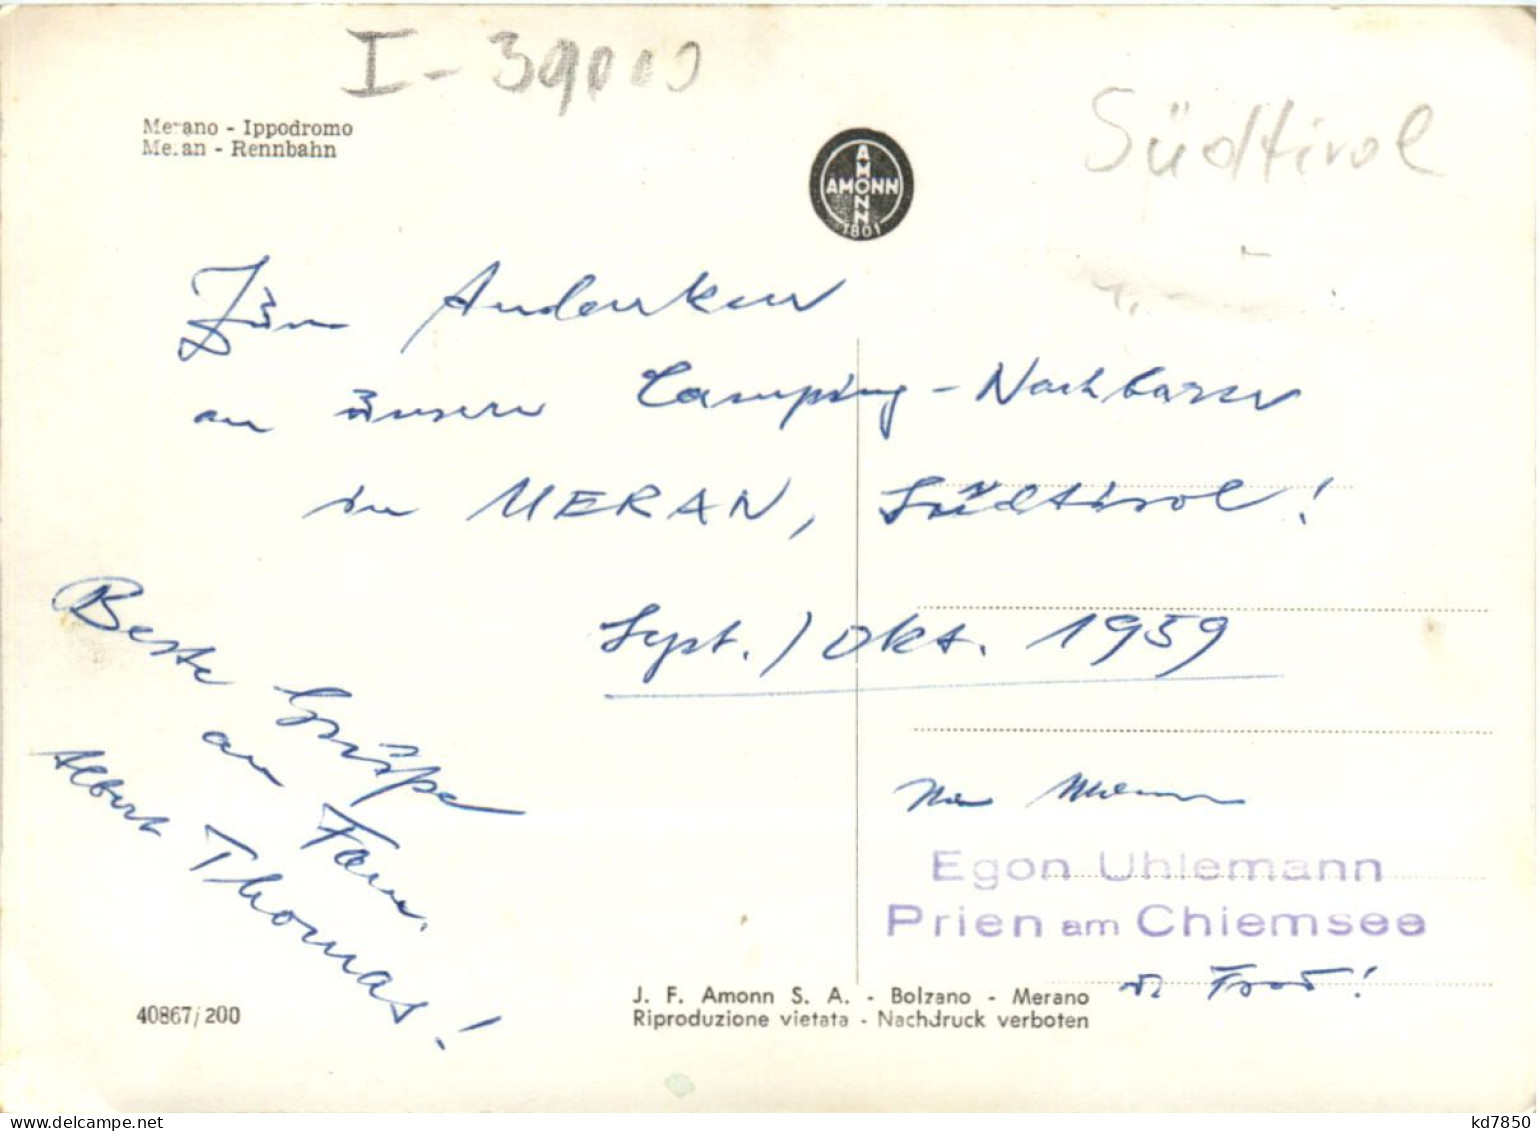 I - 39000
Merano - Ippodromo
Meran - Rennbahn
AMONN
AMONN
1801
Südtirol
Zům Andenken
an ůnsere Camping - Nachbarn
in MERAN, Südtirol!
Sept. / Okt. 1959
Beste Grüße
an Fam.
Albert Thomas!
Egon Uhlemann
Prien am Chiemsee
Fraů!
40867/200
J. F. Amonn S. A. - Bolzano - Merano
Riproduzione vietata - Nachdruck verboten
kd7850